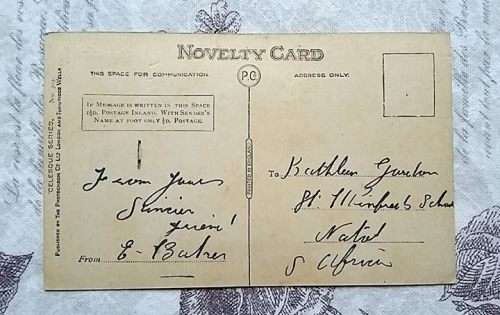 NOVELTY CARD
THIS SPACE FOR COMMUNICATION.
P.C
ADDRESS ONLY.
IF MESSAGE IS WRITTEN IN THIS SPACE
1½D. POSTAGE INLAND. WITH SENDER'S
NAME AT FOOT ONLY ½D. POSTAGE.
"CELESQUE SERIES,"
PUBLISHED BY THE PHOTOCHROM CO. LTD LONDON AND TUNBRIDGE WELLS
From Yours
Sincier
frient!
From E- Bates
PRINTED IN ENGLAND
To Kathleen
St. Winifred's School
Natal
S Africa